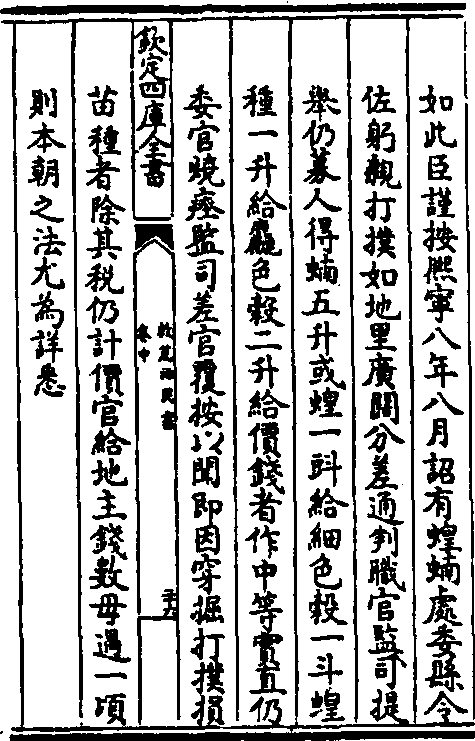 如此臣謹按熈寧八年八月詔有蝗蝻處委縣令
佐躬親打撲如地里廣闊分差通判職官監司提
舉仍募人得蝻五升或蝗一㪷給細色榖一斗蝗
種一升給麤色榖二升給價錢者作中等實直仍
委官燒瘞監司差官覆按以聞即因穿掘打撲損
欽定四庫全書
救荒活民書
卷中
苗種者除其税仍計價官給地主錢數毋過一頃
則本朝之法尤為詳悉